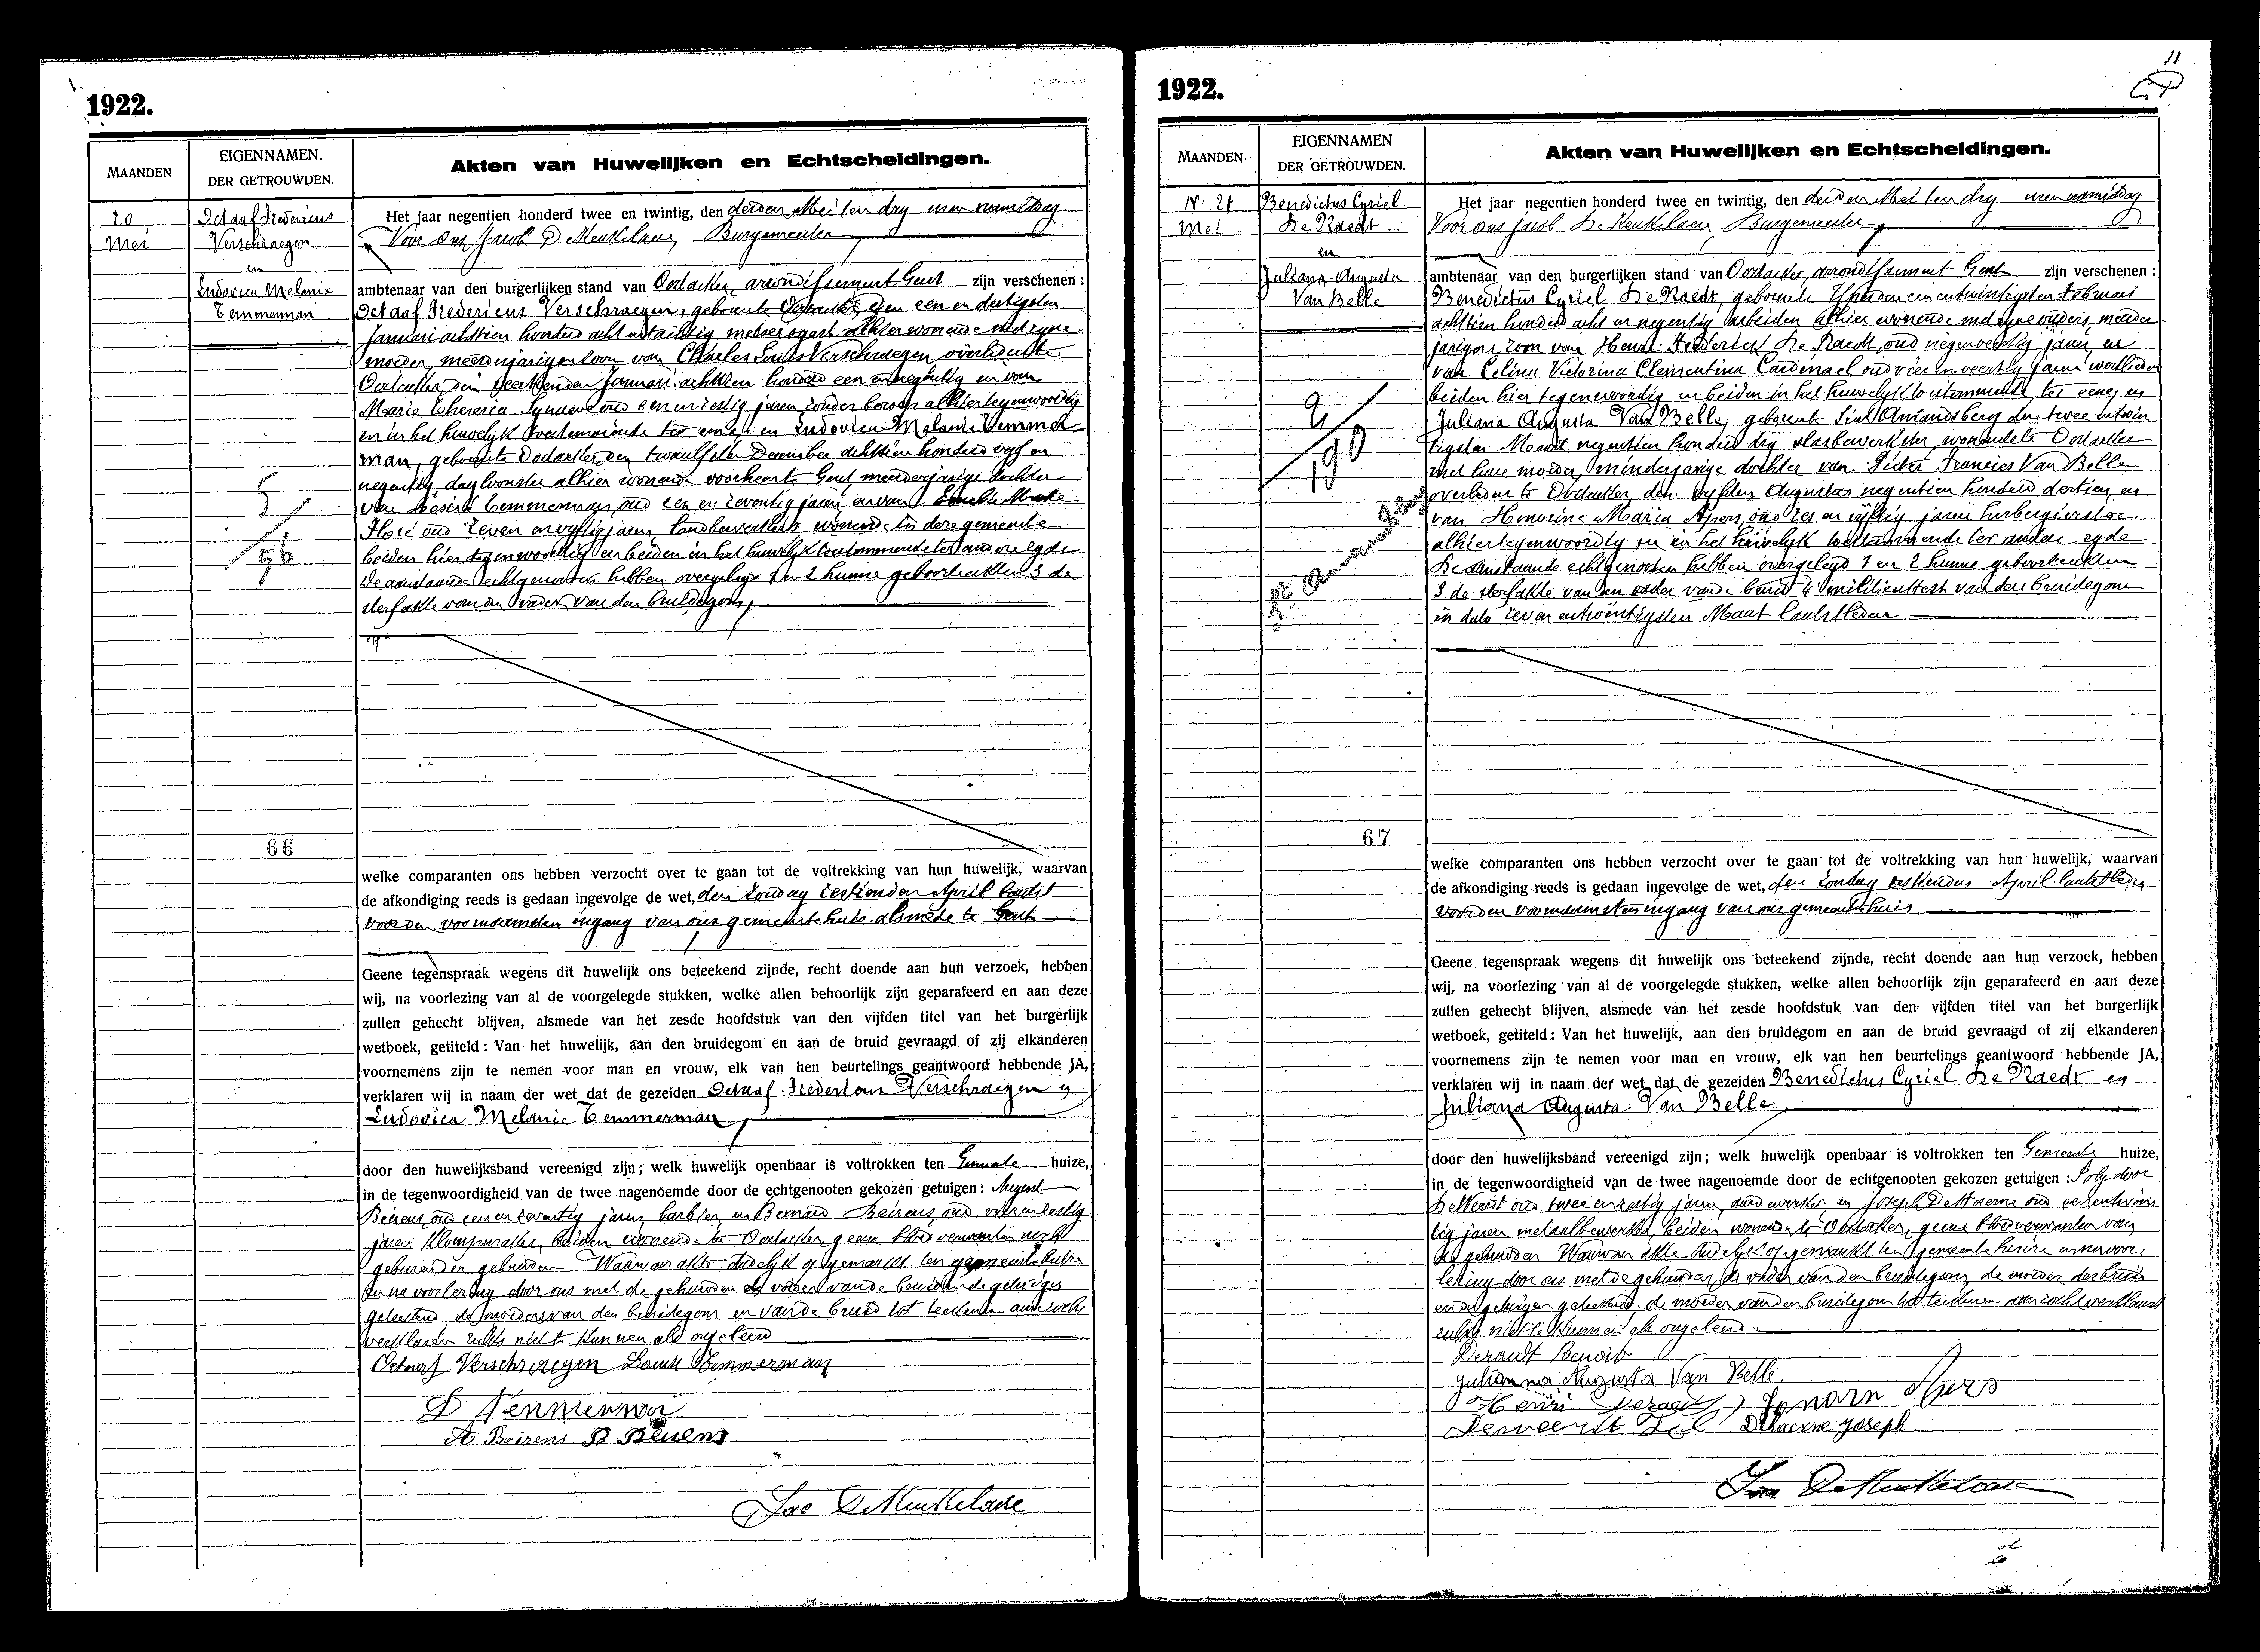 1922.
MAANDEN
EIGENNAMEN.
DER GETROUWDEN.
Akten van Huwelijken en Echtscheidingen.
20
Mei
Octaaf Fredericus
Verschraegen
en
Ludovica Melanie
Temmerman
5
56
66
Het jaar negentien honderd twee en twintig, den derden Mei ten dry uren namiddag
Voor ons Jacob De Keukelaere, Burgemeester
ambtenaar van den burgerlijken stand van Oostacker, arrondissement Gent zijn verschenen :
Octaaf Fredericus Verschraegen, geboren te Oostacker, den een en dertigsten
Januari achttien honderd acht en tachtig metser alhier wonende met zyne
moeder, meerderjarigen zoon van Charles Louis Verschraegen overleden te
Oostacker, den Januari achttien honderd een en negentig en van
Marie Theresia oud een en zestig jaren zonder beroep alhier tegenwoordig
en in het huwelyk toestemmende ter eene; en Ludovica Melanie Temmer-
man, geboren te Oostacker, den twaalfsten December achttien honderd vyf en
negentig dagloonster alhier wonende voorheen te Gent, meerderjarige dochter
van Desiré Temmerman, oud een en zeventig jaren en van
oud zeven en vyftig jaren, landbouwers wonende in deze gemeente
beiden hier tegenwoordig en beiden in het huwelyk toestemmende ter andere zyde
De aanstaande echtgenooten hebben overgelegd 1 en 2 hunne geboorteakten 3 de
sterfakte van den vader van den bruidegom,
welke comparanten ons hebben verzocht over te gaan tot de voltrekking van hun huwelijk, waarvan
de afkondiging reeds is gedaan ingevolge de wet, den zondag zestienden April laatst
voor den voornaamsten ingang van ons gemeentehuis alsmede te Gent
Geene tegenspraak wegens dit huwelijk ons beteekend zijnde, recht doende aan hun verzoek, hebben
wij, na voorlezing van al de voorgelegde stukken, welke allen behoorlijk zijn geparafeerd en aan deze
zullen gehecht blijven, alsmede van het zesde hoofdstuk van den vijfden titel van het burgerlijk
wetboek, getiteld : Van het huwelijk, aan den bruidegom en aan de bruid gevraagd of zij elkanderen
voornemens zijn te nemen voor man en vrouw, elk van hen beurtelings geantwoord hebbende JA,
verklaren wij in naam der wet dat de gezeiden Octaaf Fredericus Verschraegen en
Ludovica Melanie Temmerman,
door den huwelijksband vereenigd zijn; welk huwelijk openbaar is voltrokken ten Gemeente huize,
in de tegenwoordigheid van de twee nagenoemde door de echtgenooten gekozen getuigen : August
Beirens, oud een en zeventig jaren, barbier, en Bernard Beirens, oud vier en zestig
jaren klompmaker, beiden wonende te Oostacker, geene bloedverwanten noch
gebuuren der gehuwden Waarvan akte dadelyk opgemaakt ten gemeentehuize
en na voorlezing door ons met de gehuwden de vader van de bruid en de getuigen
geteekend, de moeders van den bruidegom en van de bruid tot teekenen aanzocht
verklaren zulks niet te kunnen als ongeleerd
Octaaf Verschraegen Louise Temmerman
D Temmerman
A Beirens B Beirens
Jac DeKeukelaere
11
1922.
MAANDEN
EIGENNAMEN
DER GETROUWDEN.
Akten van Huwelijken en Echtscheidingen.
N. 21
Mei
Benedictus Cyriel
De Raedt
en
Juliana Augusta
Van Belle
9
190
67
Het jaar negentien honderd twee en twintig, den derden Mei ten dry uren namiddag
Voor ons Jacob De Keukelaere, Burgemeester
ambtenaar van den burgerlijken stand van Oostacker, arrondissement Gent zijn verschenen :
Benedictus Cyriel De Raedt, geboren te den een en twintigsten Februari
achttien honderd acht en negentig arbeider alhier wonende met zyne ouders, meerder
jarigen zoon van Henri Frederick De Raedt, oud negen veertig jaren, en
van Celina Victorina Clementina Cardinael oud vier en veertig jaren
beiden hier tegenwoordig en beiden in het huwelyk toestemmende, ter eene, en
Juliana Augusta Van Belle, geboren te Sint Amandsberg den twee entwin
tigsten Maart negentien honderd dry vlasbewerkster, wonende te Oostacker
met hare moeder, minderjarige dochter van Pieter Francies Van Belle
overleden te Oostacker, den vyfden Augustus negentien honderd dertien en
van Honorine Maria Apers, oud zes en vyftig jaren herbergierster
alhier tegenwoordig en in het huwelyk toestemmende ter andere zyde
De aanstaande echtgenooten hebben overgelegd 1 en 2 hunne geboorteakten
3 de sterfakte van den vader van de bruid 4 militieattest van den bruidegom
in dato zeven entwintigsten Maart laatstleden
welke comparanten ons hebben verzocht over te gaan tot de voltrekking van hun huwelijk, waarvan
de afkondiging reeds is gedaan ingevolge de wet, den zondag zestienden April laatstleden
voor den voornaamsten ingang van ons gemeentehuis
Geene tegenspraak wegens dit huwelijk ons beteekend zijnde, recht doende aan hun verzoek, hebben
wij, na voorlezing van al de voorgelegde stukken, welke allen behoorlijk zijn geparafeerd en aan deze
zullen gehecht blijven, alsmede van het zesde hoofdstuk van den vijfden titel van het burgerlijk
wetboek, getiteld : Van het huwelijk, aan den bruidegom en aan de bruid gevraagd of zij elkanderen
voornemens zijn te nemen voor man en vrouw, elk van hen beurtelings geantwoord hebbende JA,
verklaren wij in naam der wet dat de gezeiden Benedictus Cyriel De Raedt en
Juliana Augusta Van Belle,
door den huwelijksband vereenigd zijn; welk huwelijk openbaar is voltrokken ten Gemeente huize,
in de tegenwoordigheid van de twee nagenoemde door de echtgenooten gekozen getuigen : Polydoor
DeWeerdt oud twee en zestig jaren, en Joseph DeHaerne oud een entwin
tig jaren metaalbewerker, beiden wonende te Oostacker, geene bloedverwanten van
de gehuwden Waarvan akte dadelyk opgemaakt ten gemeentehuize en na voor-
lezing door ons met de gehuwden, de vader van den bruidegom, de moeder der bruid
en de getuigen geteekend, de moeder van den bruidegom tot teekenen aanzocht verklaart
zulks niet te kunnen als ongeleerd
Deraedt Benoit
Julianna Augusta Van Belle
Henri Deraedt Honorin Apers
Deweerdt Pol Dehaerne Joseph
Jac DeKeukelaere